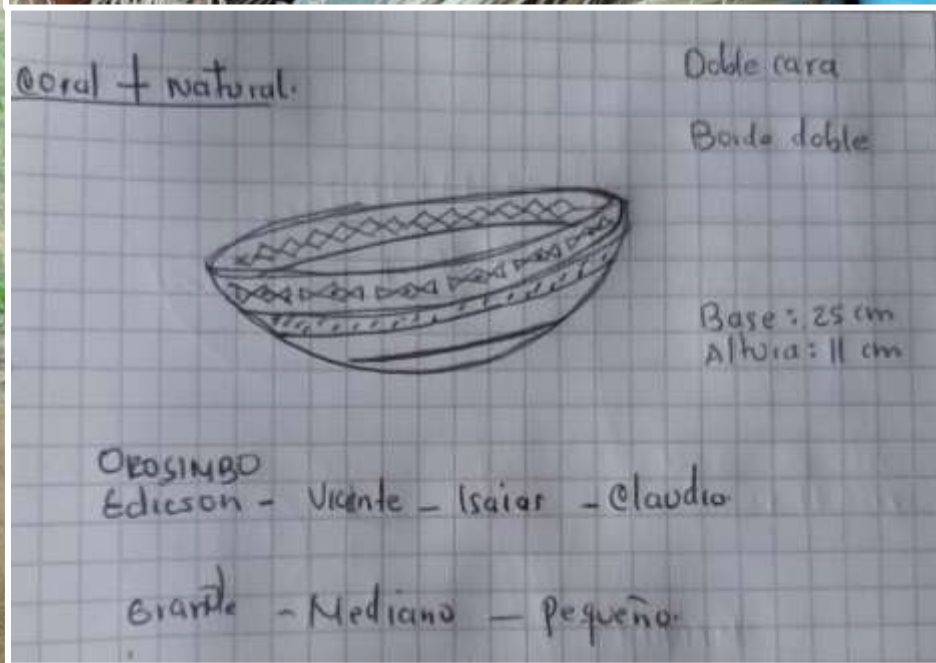 Coral + Natural.
Doble cara
Borde doble
Base: 25 cm
Altura: 11 cm
OROSIMBO
Edicson - Vicente - Isaias - Claudio
Grande - Mediano - Pequeño.